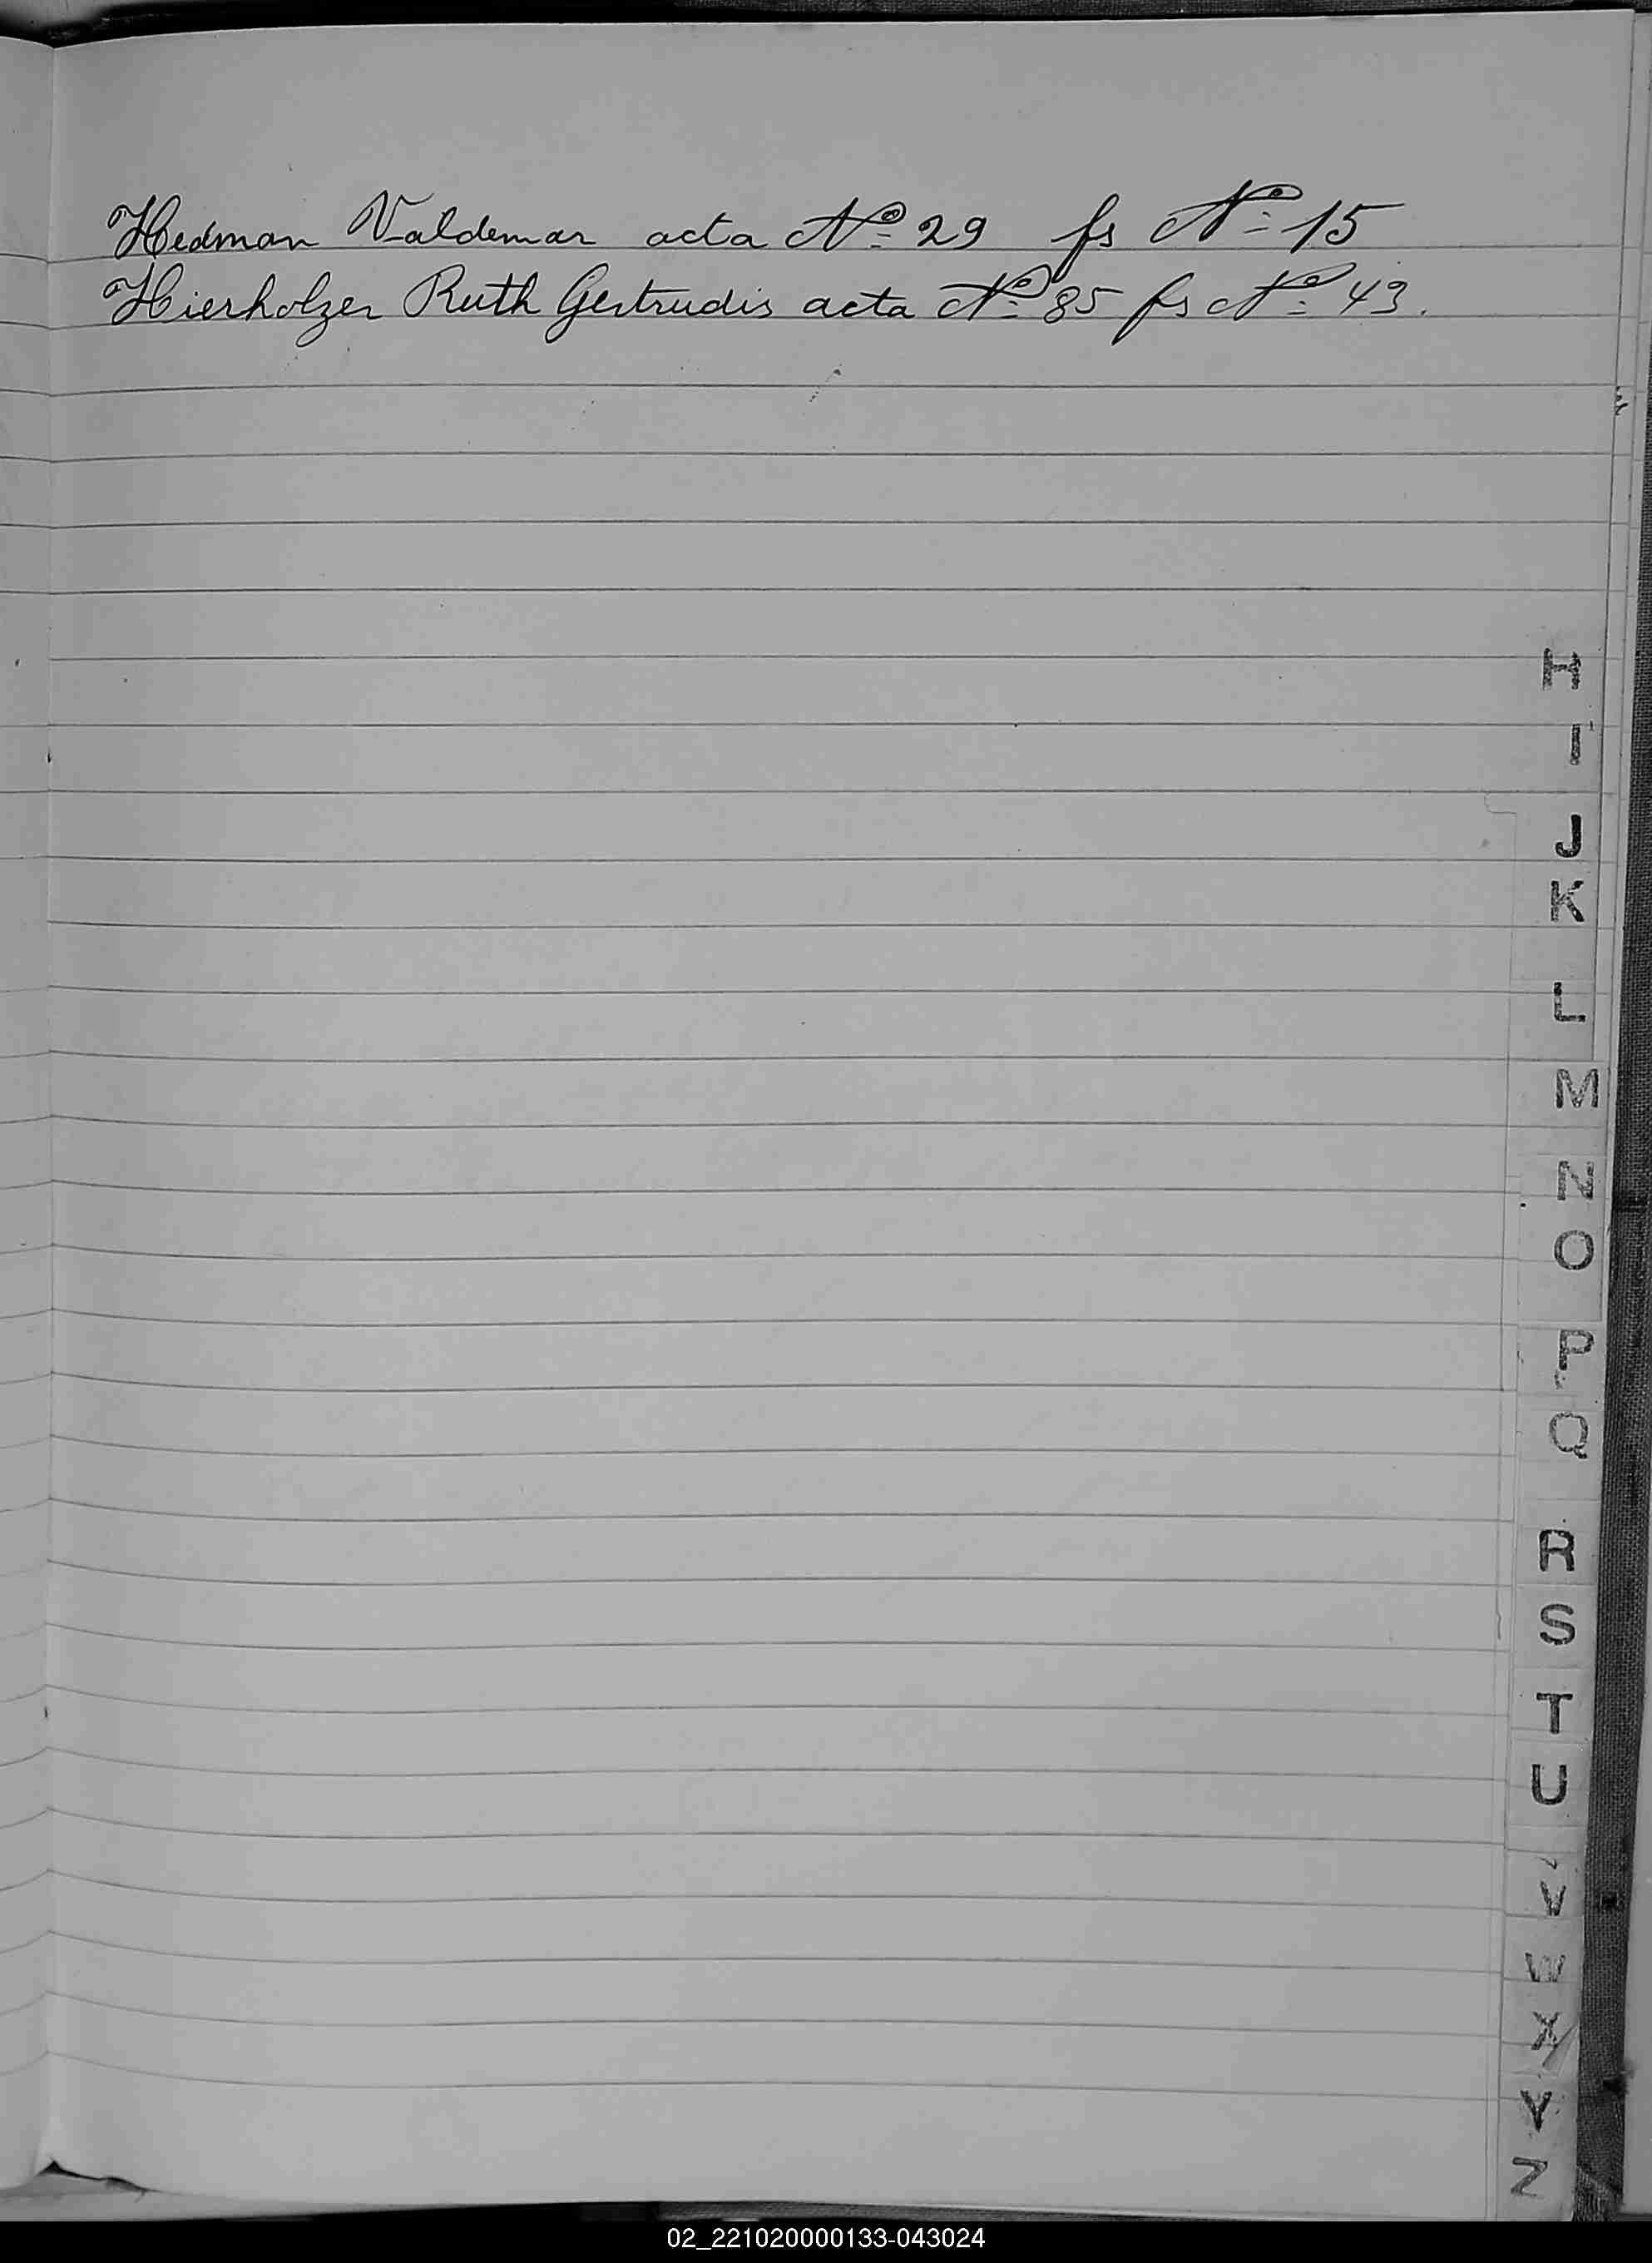 Hedman Valdemar acta Nº 29 fs Nº 15
Hierholzer Ruth Gertrudis acta Nº 85 fs Nº 43.
H
I
J
K
L
M
N
O
P
Q
R
S
T
U
V
W
X
Y
Z
02_221020000133-043024